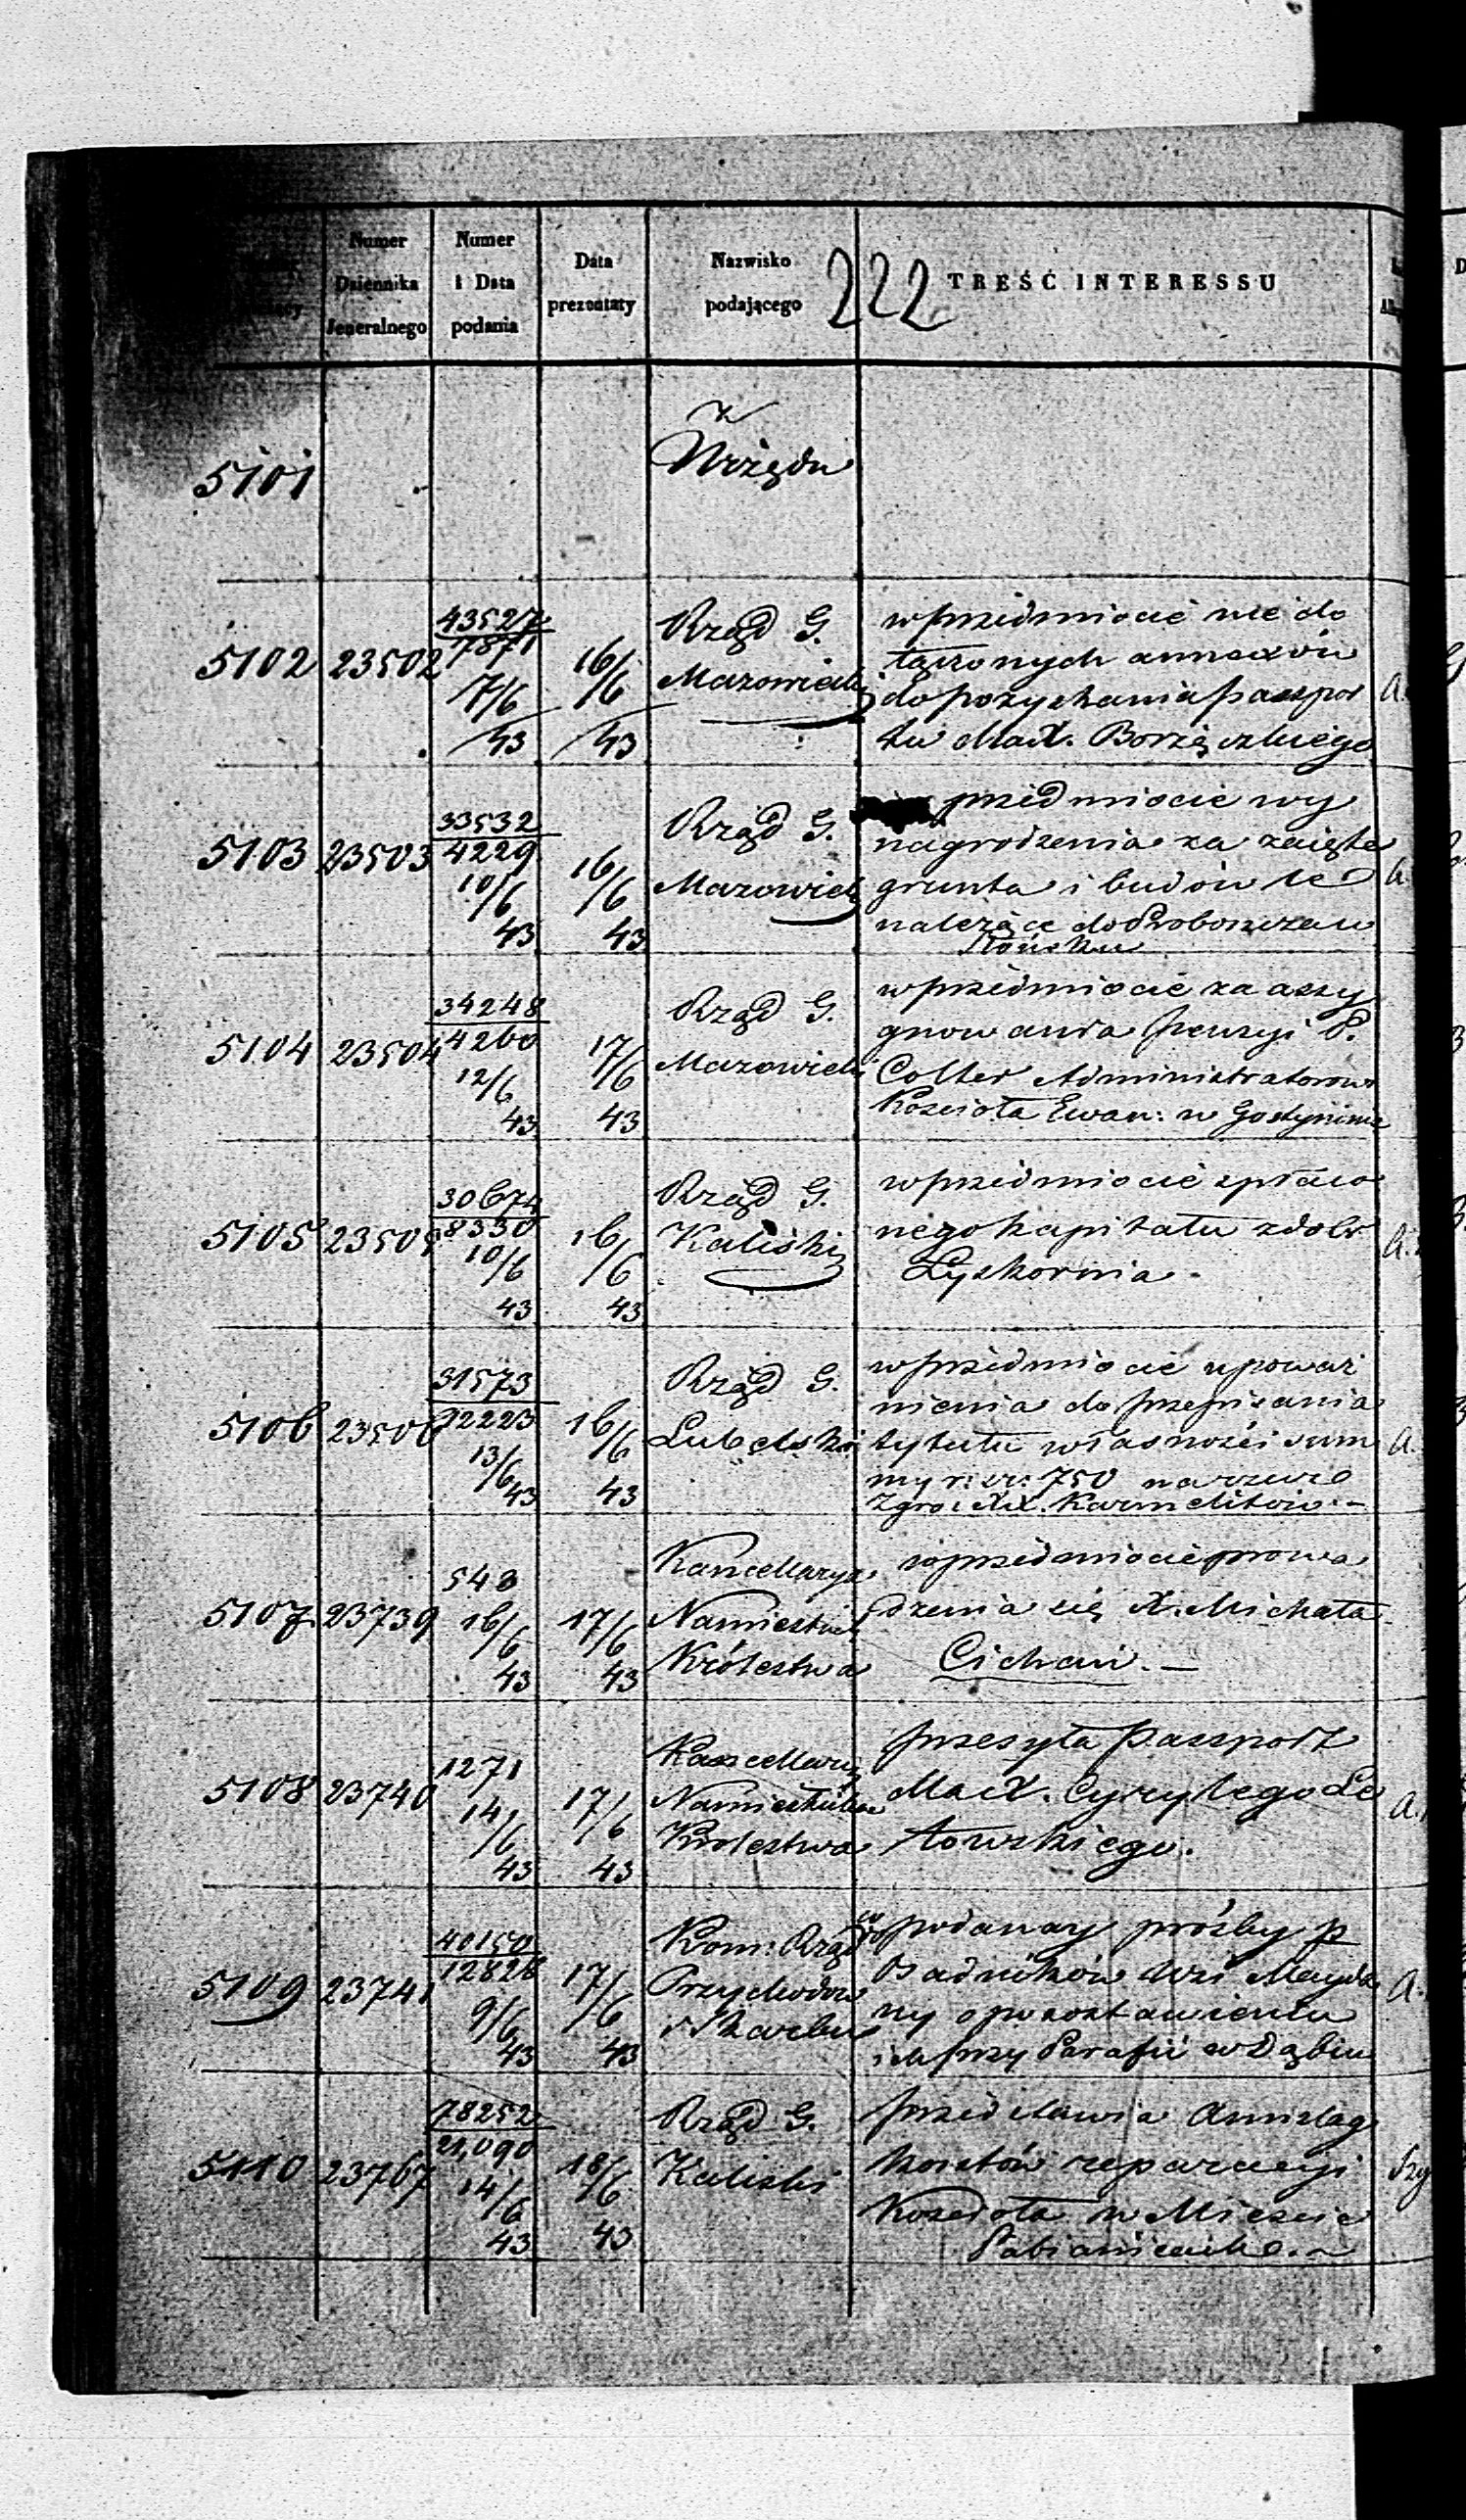 Numer
Dziennika
Jeneralnego
Numer
i Data
podania
Data
prezentaty
Nazwisko
podającego
222
TREŚĆ INTERESSU
5101
z
Urzędu
5102 23502
43527
7871
7/6
43
16/6
43
Rząd G.
Mazowiecki
w przedmiocie nie do
łączonych annexów
do pozyskania passpor
tu Max. Borzęckiego
5103 23503
33532
4229
10/6
43
16/6
43
Rząd G.
Mazowiecki
przedmiocie wy
nagrodzenia za zajęte
grunta i budowle
należące do Probostwa w
Płońsku
5104 23504
34248
4260
12/6
43
17/6
43
Rząd G.
Mazowiecki
w przedmiocie za assy
gnowania pensyi P.
Colter Administratorowi
Kościoła Ewan: w Gostyninie
5105 23505
30674
8330
10/6
43
16/6
43
Rząd G.
Kaliski
w przedmiocie
nego kapitału z dóbr
Lyskornia.
5106 23506
31573
92223
13/6
43
16/6
43
Rząd G.
Lubelski
w przedmiocie upoważ
nienia do przepisania
tytułu własności sum
my r: sr: 750 na rzecz
Zgro: XX. Karmelitów.-
5107 23739
543
16/6
43
17/6
43
Kancellarya
Namiestnika
Królestwa
w przedmiocie prowa
dzenia się X. Michała
Cichań.-
5108 23740
1271
14/6
43
17/6
43
Kancellarya
Namiestnika
Królestwa
przesyła Passport
Max. Cyrylego Le
towskiego.
5109 23741
40150
12826
9/6
43
17/6
43
Kom: Rząd
Przychodów
i Skarbu
podanay prośby p
Osadników Wsi Mayda
ny o pozostawieniu
ich przy Parafii w Dąbiu
5110 23767
78252
21,090
14/6
43
18/6
43
Rząd G.
Kaliski
przedstawia Annszlag
kosztów reparacyi
Kościoła w Mieście
Pabianicach.-